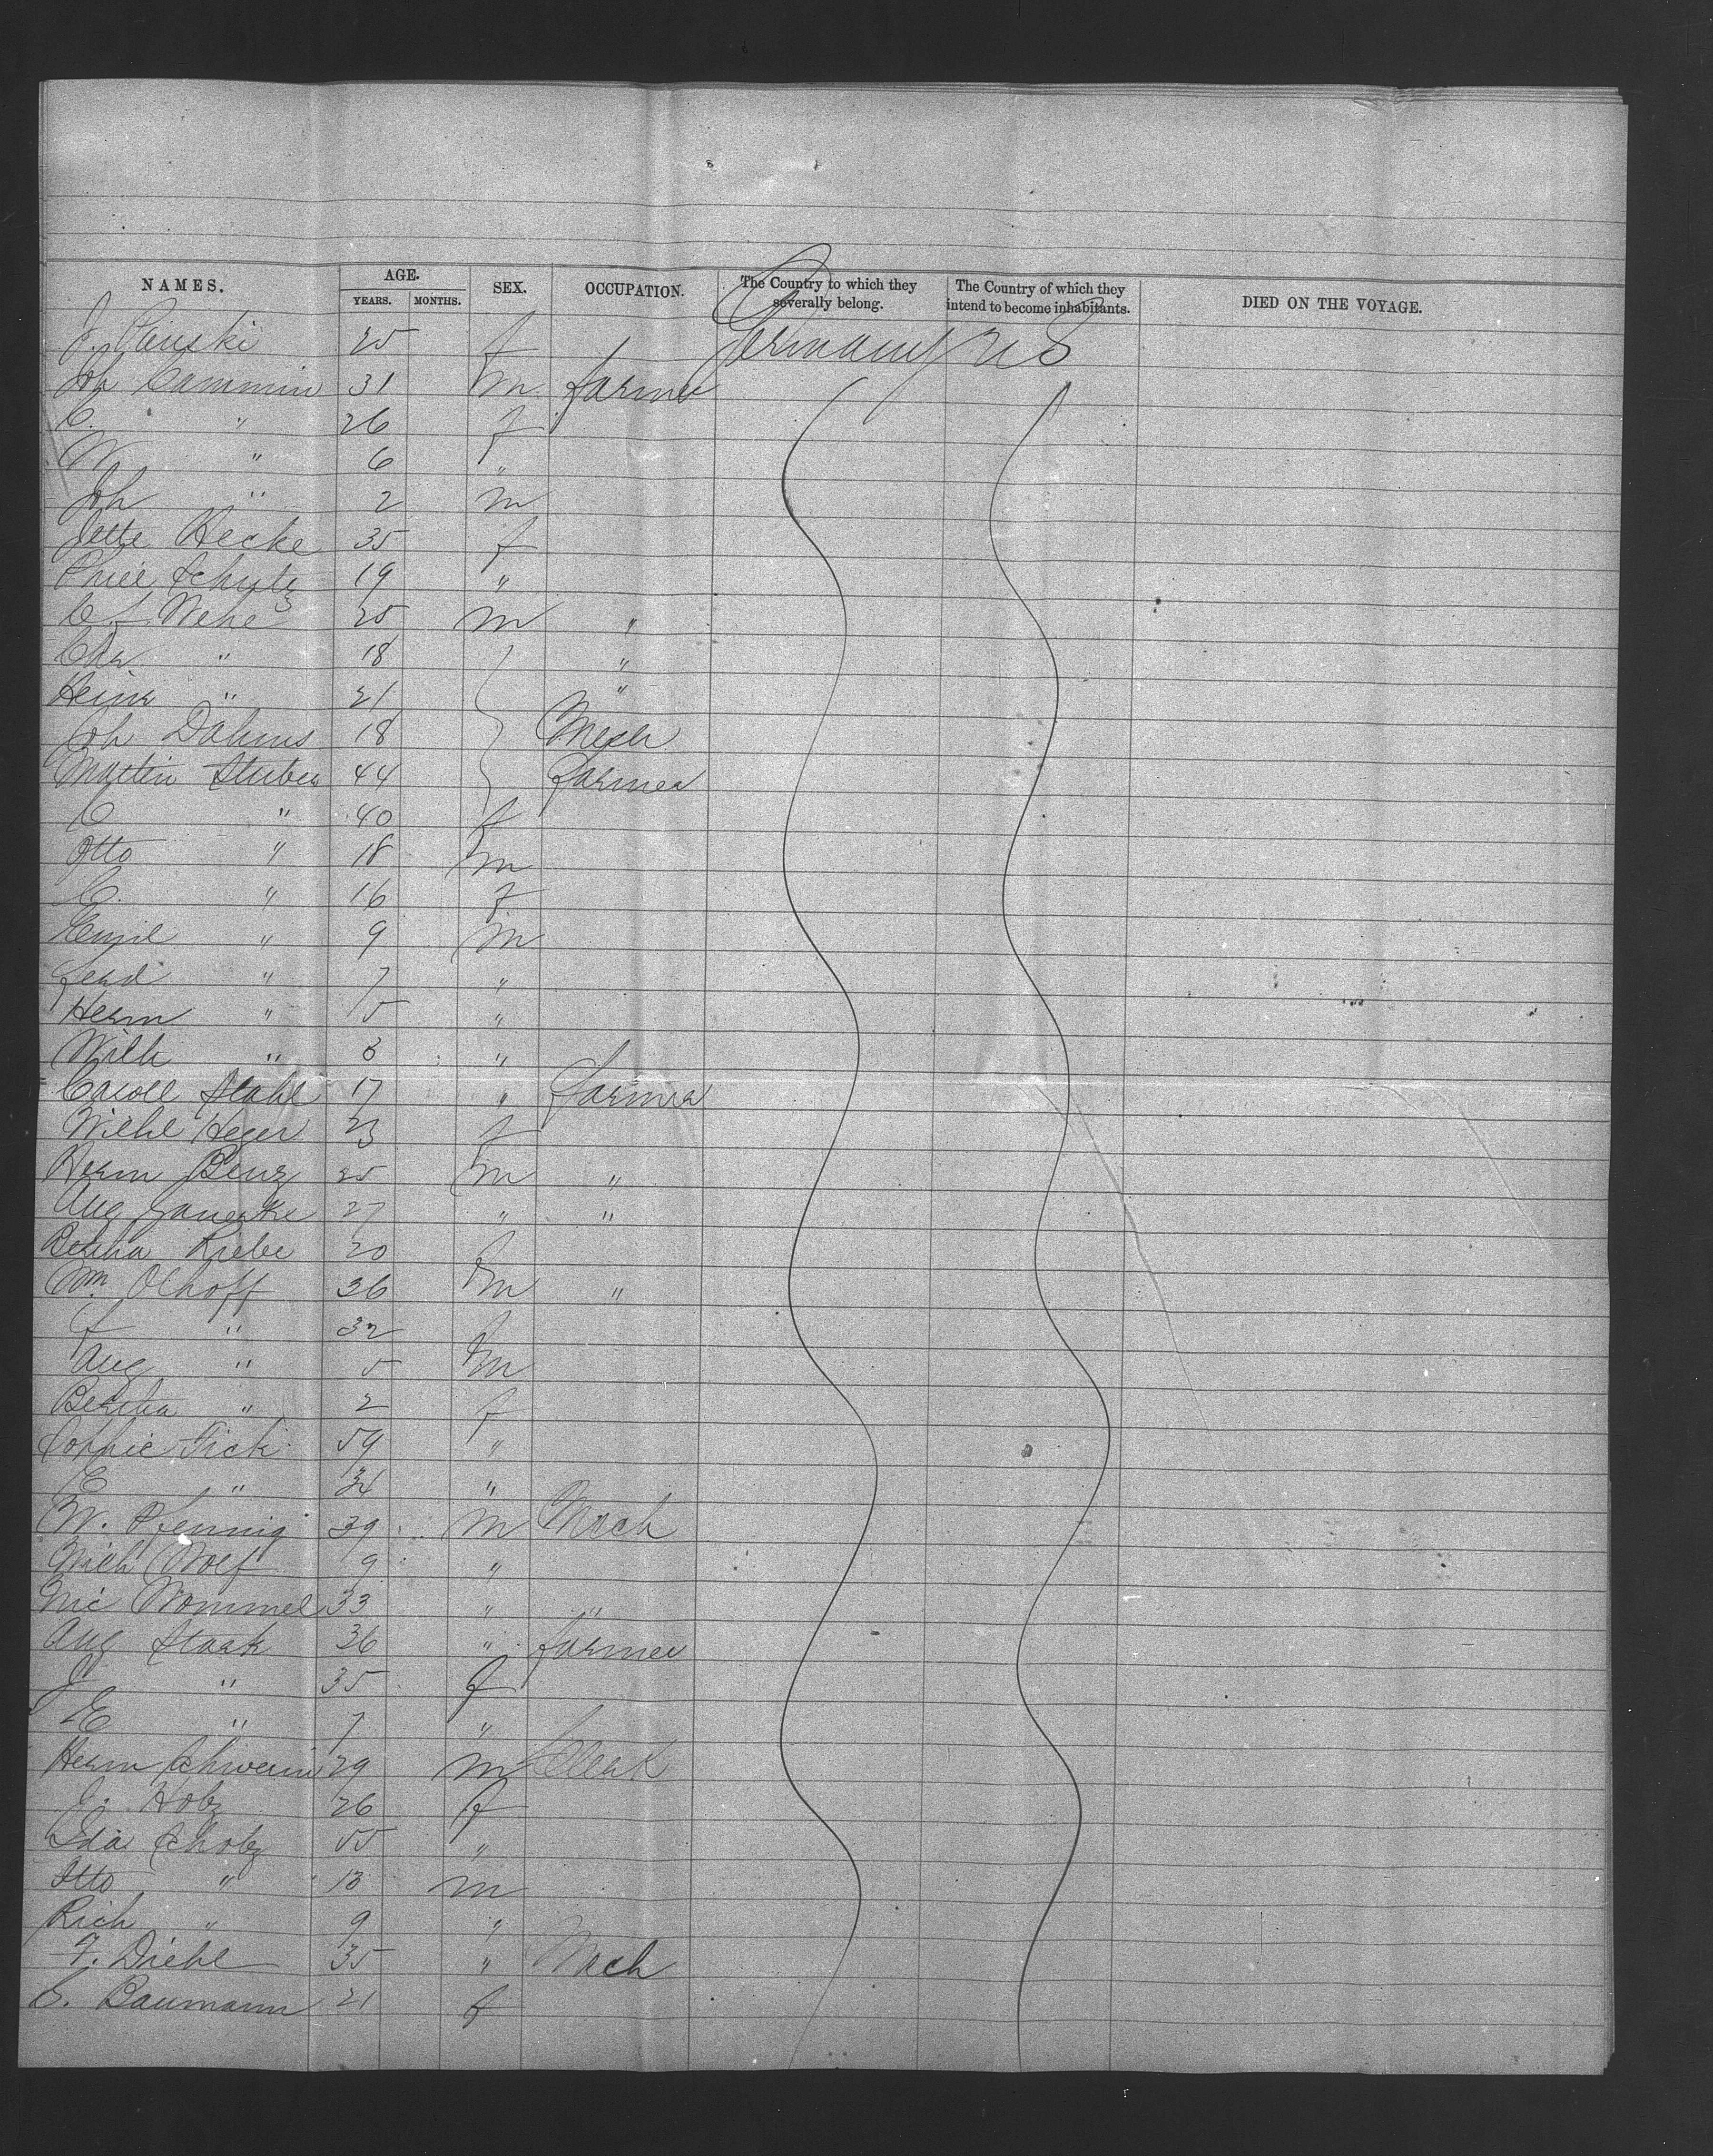 NAMES. AGE. SEX. OCCUPATION. The Country to which they severally belong. The Country of which they intend to become inhabitants. DIED ON THE VOYAGE.
YEARS. MONTHS.
J. 25 f Germany U S
Joh Cammin 31 m farmer
C. " 26 f
W " 6 "
Joh " 2 m
Jette Hecke 35 f
Schultz 19 "
Wehe 25 m "
Chr " 18 "
Heinr " 21 "
Joh Dahms 18 Mech
Martin Stuber 44 farmer
C " 40 f
Otto " 18 m
C. " 16 f
Emil " 9 m
Ferd " 7 "
Herm " 5 "
Wilh " 3 "
Stahl 17 " farmer
Wilhl Heger 23 f
Herm Benz 25 m "
Aug 27 " "
Bertha Kriebe 20 f
Wm. Olhoff 36 m "
F " 32 f
Aug " 5 m
Bertha " 2 f
Sophie Fick 59 "
E " 34 "
W. Pfennig 39 m Mech
Mich Wolf 9 "
Nic Wommel 33 " "
Aug Staak 36 " farmer
J " 35 f
E " 7 "
Herm Schwerin 29 m Clerk
J. Holz 26 f
Ida Scholz 55 "
Otto " 13 m
Rich " 9 "
F. Diehl 35 " Mech
S. Baumann 21 f